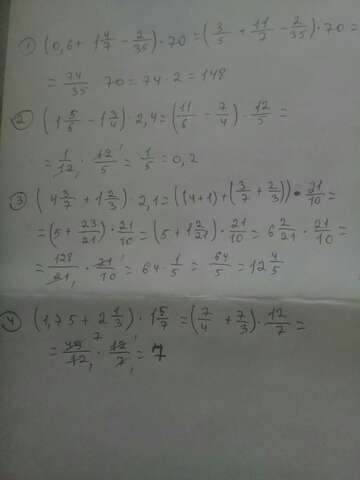 1) (0,6 + 1 4/7 - 2/35) · 70 = (3/5 + 11/7 - 2/35) · 70 =
= 74/35 70 = 74 · 2 = 148
2) (1 5/6 - 1 3/4) · 2,4 = (11/6 - 7/4) · 12/5 =
= 1/12 · 12/5 = 1/5 = 0,2
3) (4 3/7 + 1 2/3) · 2,1 = ((4+1) + (3/7 + 2/3)) · 21/10 =
= (5 + 23/21) · 21/10 = (5 + 1 2/21) · 21/10 = 6 2/21 · 21/10 =
= 128/21 · 21/10 = 64 · 1/5 = 64/5 = 12 4/5
4) (1,75 + 2 1/3) · 1 5/7 = (7/4 + 7/3) · 12/7 =
= 49/12 · 12/7 = 7